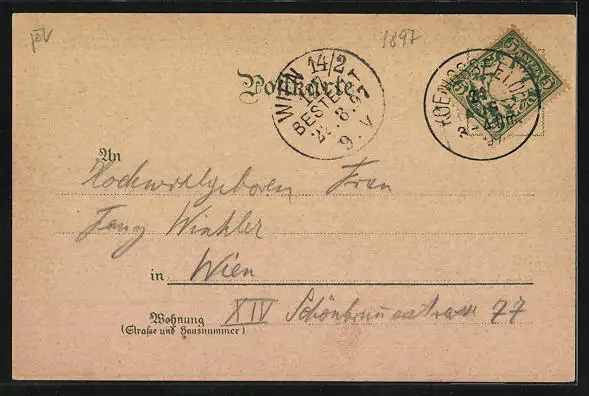 1897
Postkarte
WIEN 14/2
BESTELLT
22.8.97
9.V
5 5
An
Hochwohlgeboren Frau
Fany Winkler
in Wien
Wohnung
(Straße und Hausnummer)
XIV Schönbrunnerstrasse 77